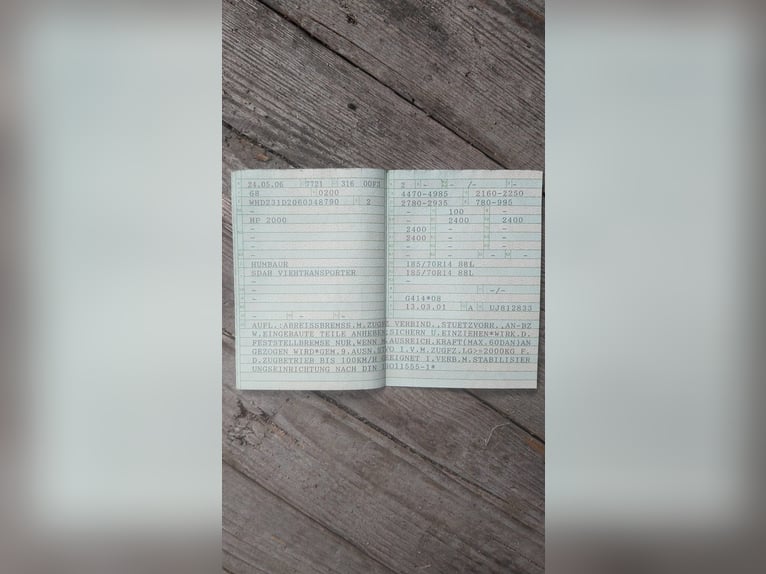 24.05.06 7721 316 00F3
G8 0200
WHD231D2060348790 2
-
HP 2000
-
-
-
-
HUMBAUR
SDAH VIEHTRANSPORTER
-
-
-
-
- -
2 - - /- -
4470-4985 2160-2250
2780-2935 780-995
- 100 -
- 2400 2400
2400 - -
2400 - -
- - -
- - - -
185/70R14 88L
185/70R14 88L
-
- -/-
G414*08
13.03.01 A UJ812833
AUFL.:ABREISSBREMSS.M.ZUGFZ VERBIND.,STUETZVORR.,AN-BZ
W.EINGEBAUTE TEILE ANHEBEN,SICHERN U.EINZIEHEN*WIRK.D.
FESTSTELLBREMSE NUR,WENN M.AUSREICH.KRAFT(MAX.60DAN)AN
GEZOGEN WIRD*GEM.9.AUSN.STVO I.V.M.ZUGFZ.LG>=2000KG F.
D.ZUGBETRIEB BIS 100KM/H GEEIGNET I.VERB.M.STABILISIER
UNGSEINRICHTUNG NACH DIN ISO11555-1*